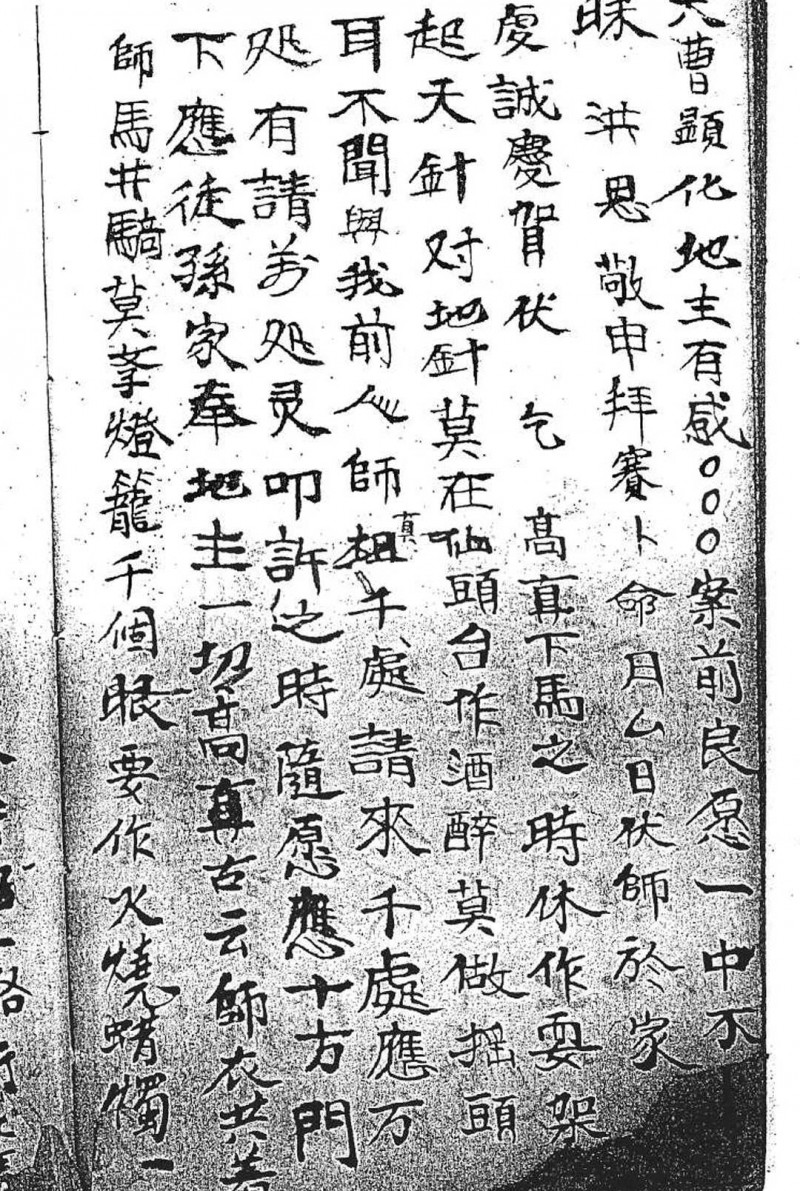 天曹顕化地主有感○○○案前良愿一中不
昧 洪恩敬申拜賽卜命月厶日伏師於家
虔誠慶賀伏 乞 高真下馬之時休作耍架
起天針对地針莫在仙頭台作酒醉莫做摇頭
耳不聞與我前人師祖真千處請來千處應万
処有請万処灵叩許之時隨愿應十方門
下應徒孫家奉地主一切高真古云師衣共着
師馬共騎莫
燈籠千個眼要作火燒蜡燭一